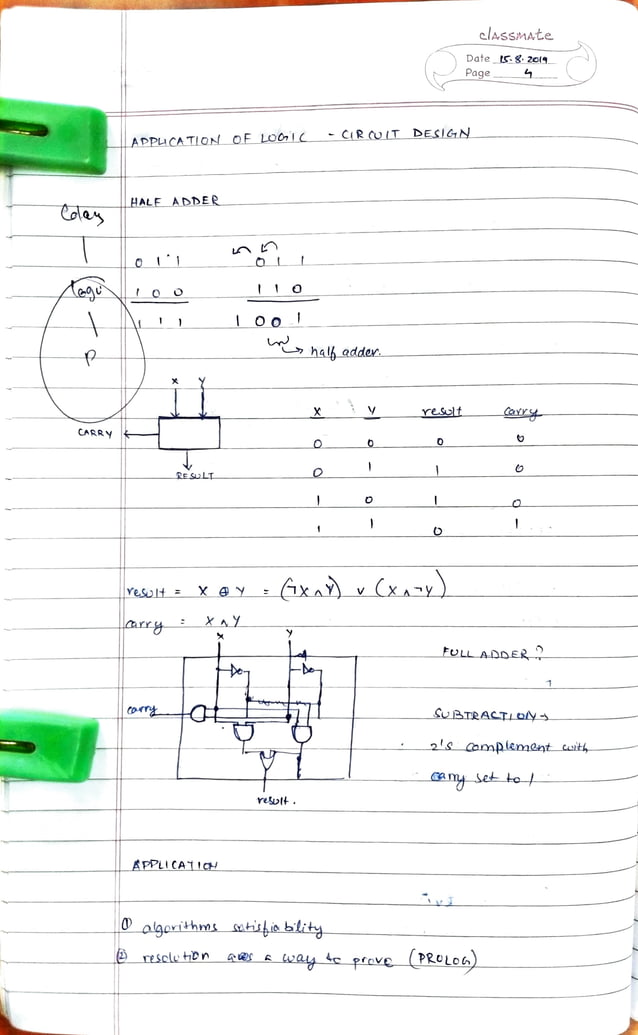 classmate
Date 15.8.2019
Page 4
APPLICATION OF LOGIC - CIRCUIT DESIGN
HALF ADDER
0 1 1
1 0 0
1 1 1
0 1 1
1 1 0
1 0 0 1
half adder.
P
X Y
CARRY
RESULT
X Y result carry
0 0 0 0
0 1 1 0
1 0 1 0
1 1 0 1
result = X ⊕ Y = (¬X ∧ Y) ∨ (X ∧ ¬Y)
carry = X ∧ Y
X Y
carry
result.
FULL ADDER?
SUBTRACTION →
2's complement with
carry set to 1
APPLICATION
① algorithms satisfiability
② resolution as a way to prove (PROLOG)